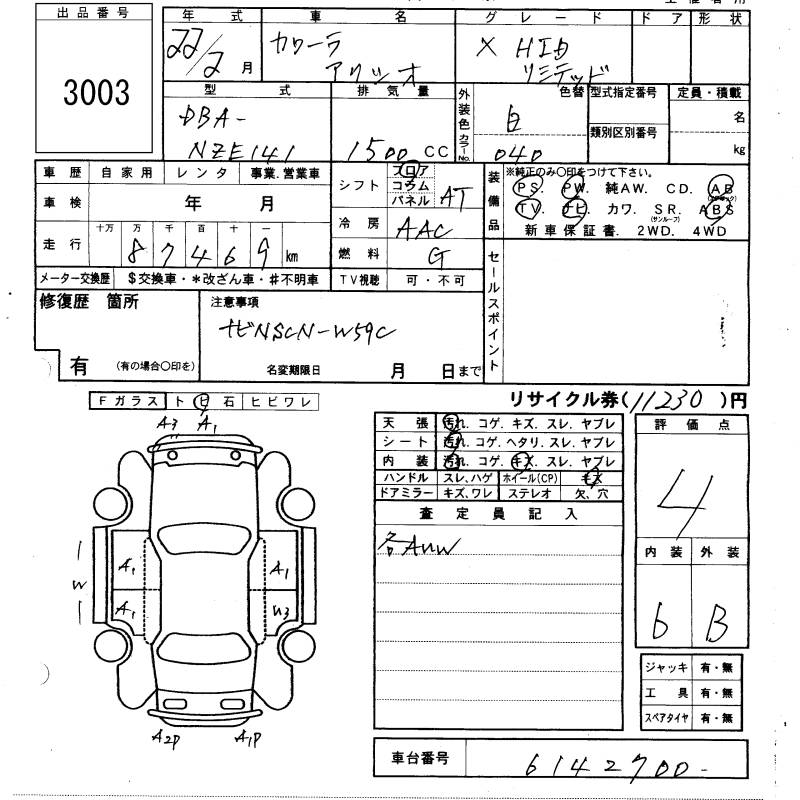 出品番号
3003
年式 車名 グレード ドア 形状
22/2月 カローラ アクシオ X HID リミテッド
型式 排気量 外装色 カラーNo. 色替 型式指定番号 定員・積載
DBA-
NZE141 1500 CC 白 040 類別区別番号 名 kg
車歴 自家用 レンタ 事業.営業車
車検 年 月
走行 十万 万 千 百 十 一
8 7 4 6 9 km
シフト フロア コラム パネル AT
冷房 AAC
燃料 G
メーター交換歴 $交換車・*改ざん車・#不明車 TV視聴 可・不可
装備品 ※純正のみ〇印をつけて下さい。
PS. PW. 純AW. CD. AB
TV. ナビ. カワ. SR.(サンルーフ) ABS
新車保証書. 2WD. 4WD
セールスポイント
修復歴 箇所
有 (有の場合〇印を)
注意事項
ナビNSCN-W59C
名変期限日 月 日まで
リサイクル券(11230)円
Fガラス トビ石 ヒビワレ
A3 A1
A1 A1
W
A1 U3
A2P A1P
天張 汚れ. コゲ. キズ. スレ. ヤブレ
シート 汚れ. コゲ. ヘタリ. スレ. ヤブレ
内装 汚れ. コゲ. キズ. スレ. ヤブレ
ハンドル スレ.ハゲ ホイール(CP) キズ
ドアミラー キズ.ワレ ステレオ 欠.穴
査定員記入
各AUW
評価点
4
内装 外装
6 B
ジャッキ 有・無
工具 有・無
スペアタイヤ 有・無
車台番号 6142700-